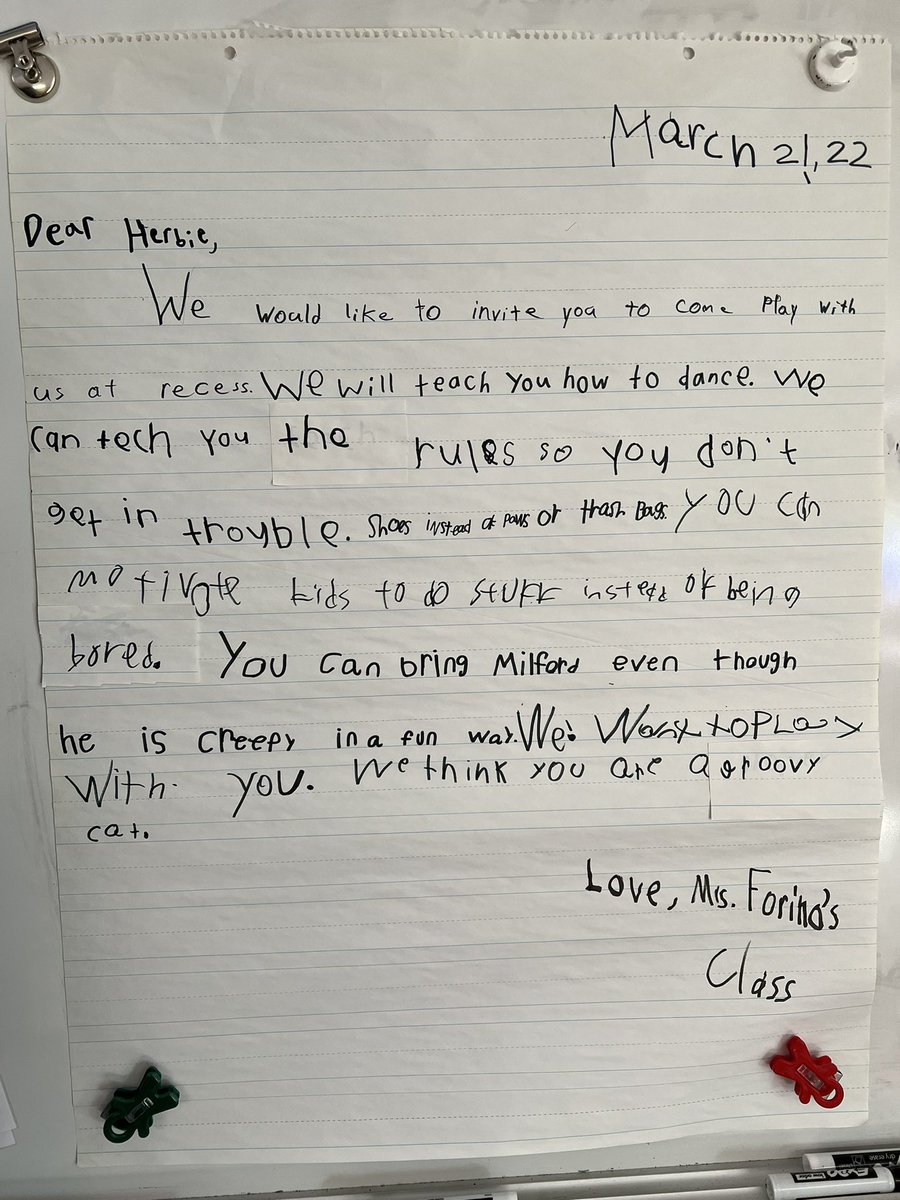 March 21, 22
Dear Herbie,
We would like to invite you to come Play with
us at recess. We will teach you how to dance. We
can tech you the rules so you don't
get in trouble. Shoes instead of Paws or trash Bags. you can
motivate kids to do stuff instead of being
bored. You can bring Milford even though
he is creepy in a fun way. We Want to Play
With you. We think you are a groovy
cat.
Love, Mrs. Forino's
Class
EXPO
dry erase